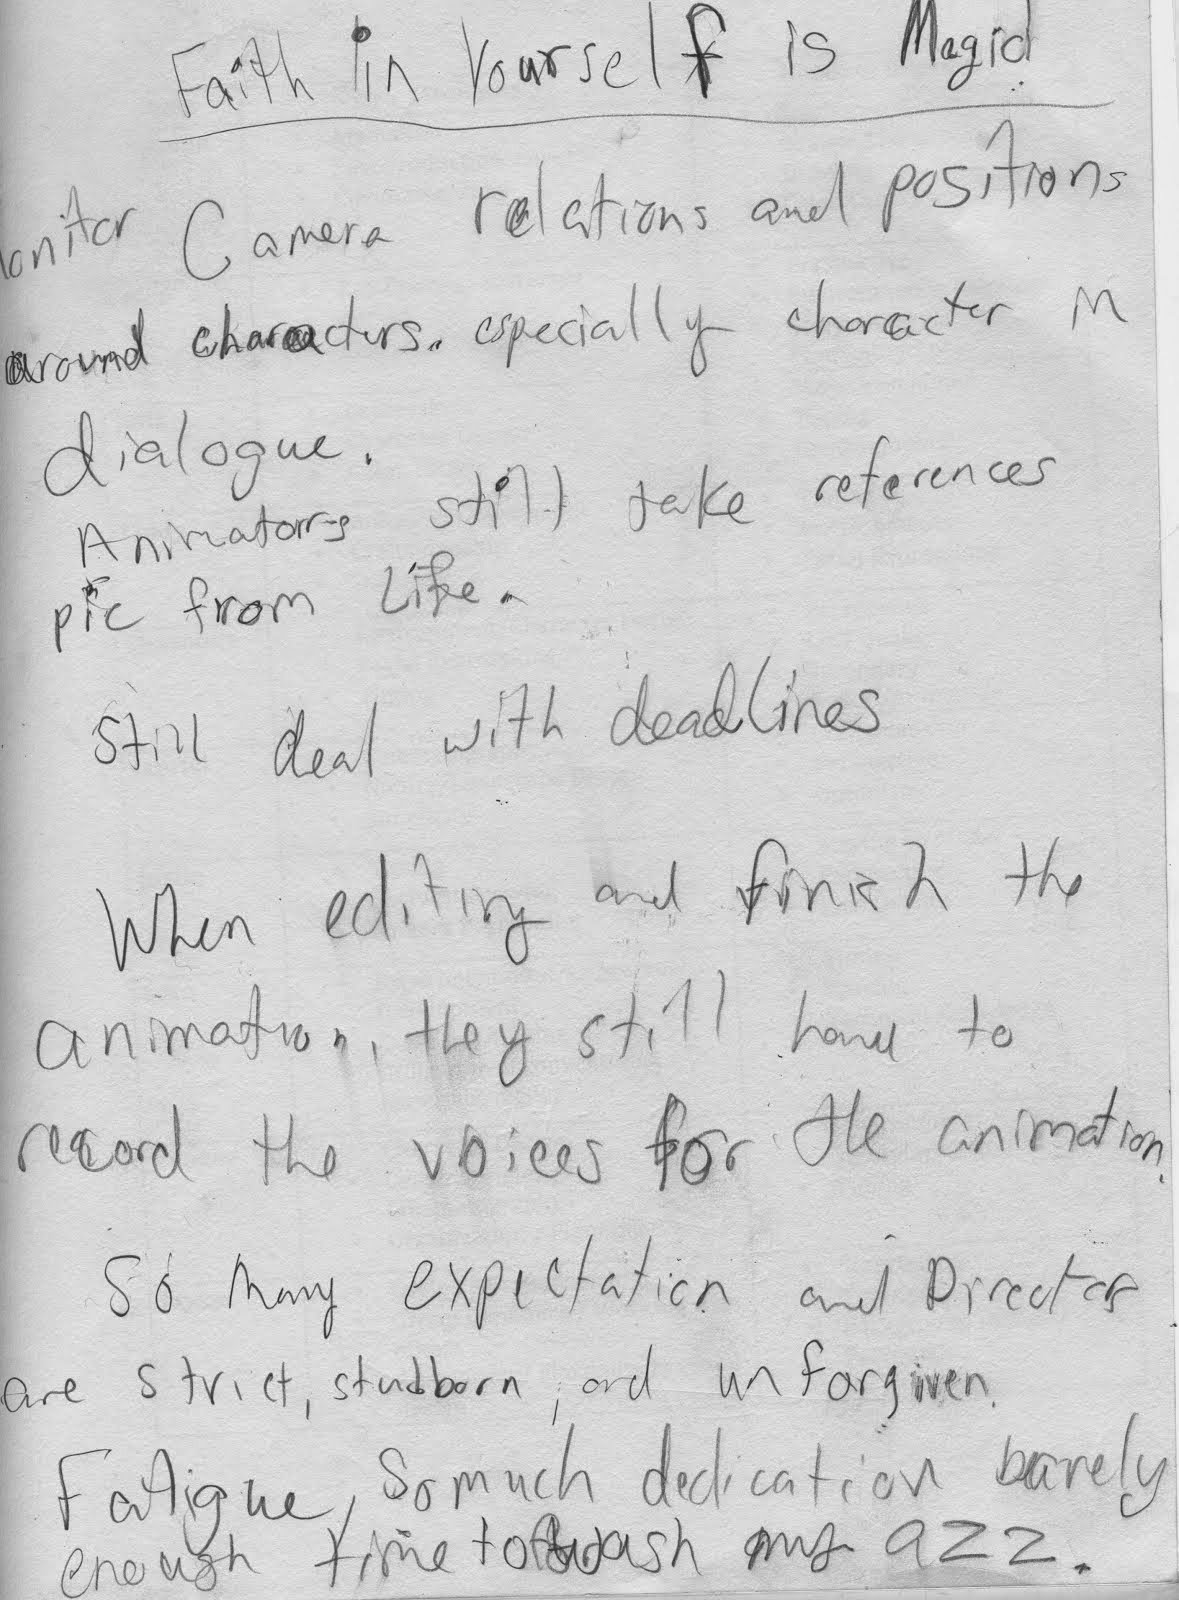 Faith in Yourself is Magic!
onitor Camera relations and positions
around characters. especially character M
dialogue.
Animators still take references
pic from Life.
still deal with deadlines
When editing and finish the
animation, they still have to
record the voices for the animation.
So many expectation and Director
are strict, studborn, and unforgiven.
Fatigue, So much dedication barely
enough time to wash my azz.